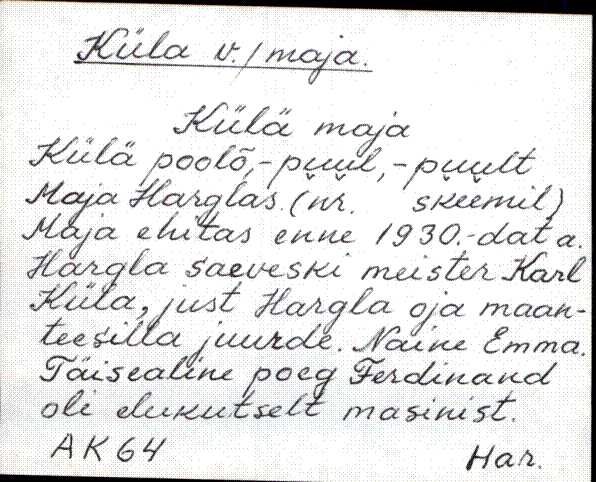 Küla v./maja.
Külä maja
Külä poolõ,-puul,-puult
Maja Harglas. (nr. skeemil)
Maja ehitas enne 1930.-dat a.
Hargla saeveski meister Karl
Küla, just Hargla oja maan-
teesilla juurde. Naine Emma.
Täisealine poeg Ferdinand
oli elukutselt masinist.
AK64 Har.